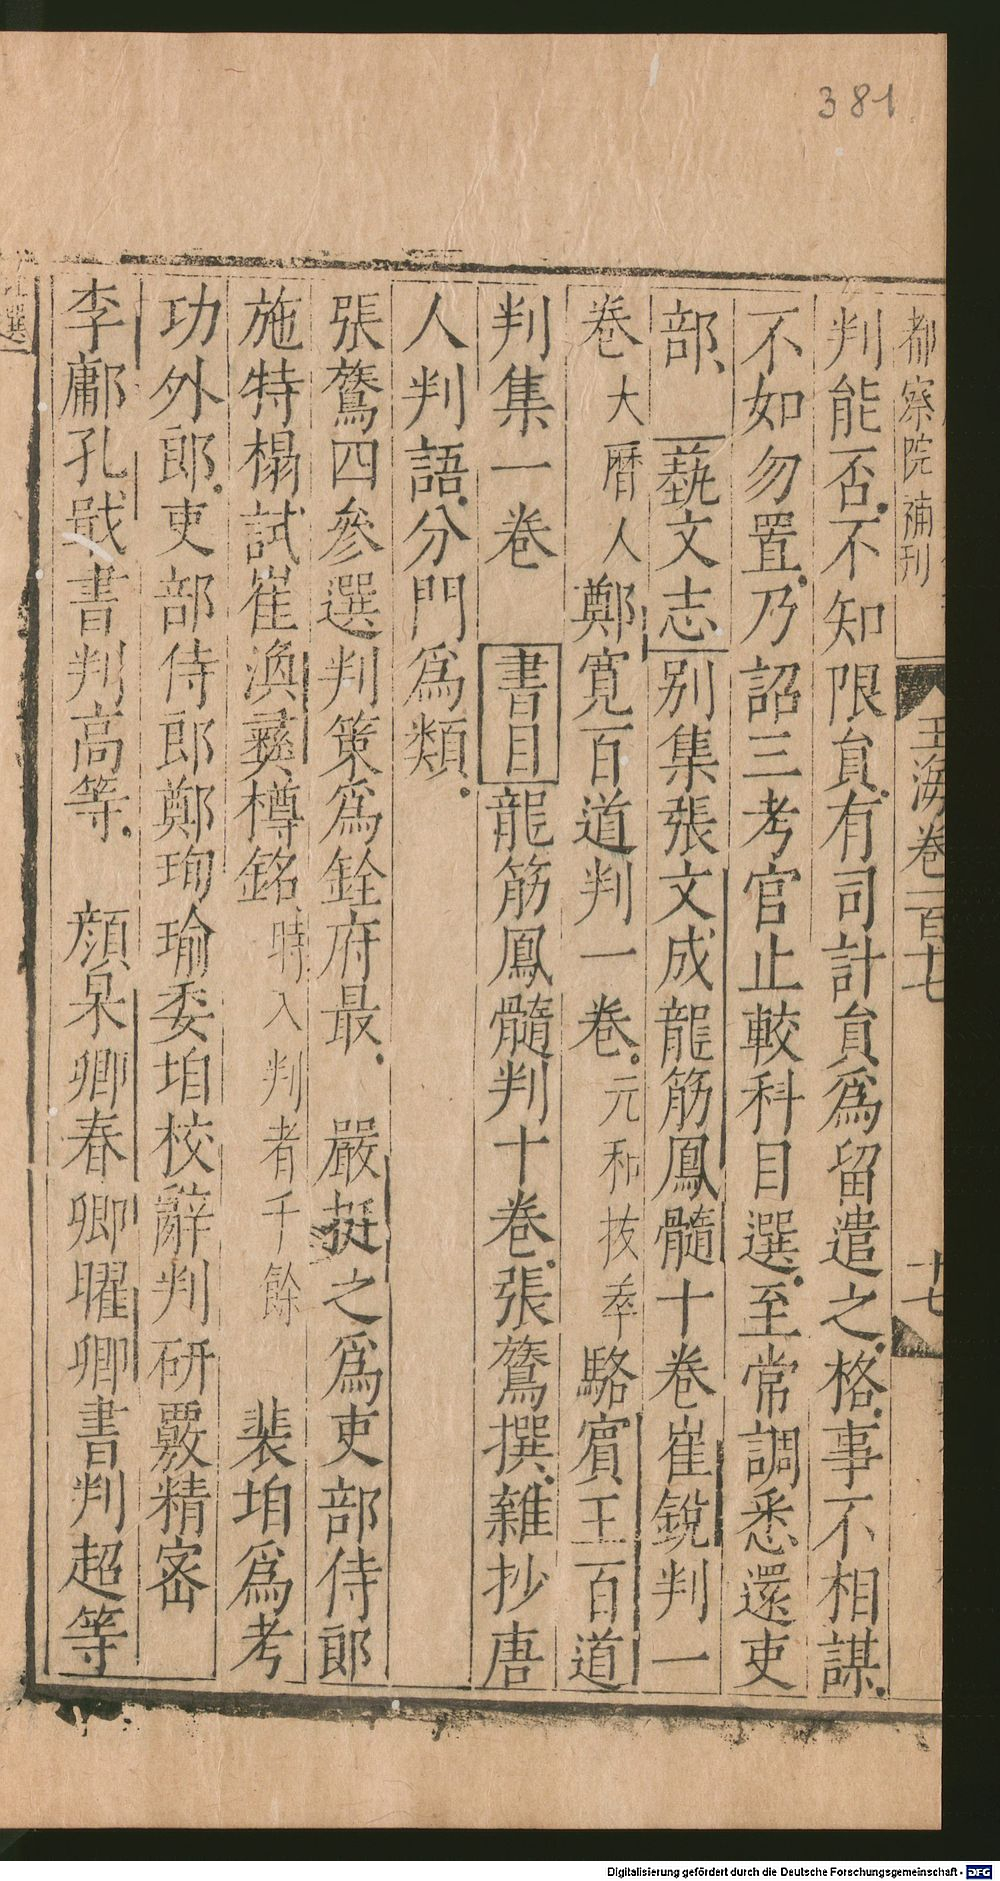 381
都察院補刊
玉海卷一百十七
十七
判能否不知限負有司計負爲留遣之格事不相謀
不如勿置乃詔三考官止較科目選至常調悉還吏
部 蓺文志别集張文成龍筋鳳髓十卷崔銳判一
卷大曆人鄭寛百道判一卷元和抜萃駱賓王百道
判集一卷 書目龍筋鳳髓判十卷張鷟撰雜抄唐
人判語分門爲類
張鷟四參選判策爲銓府最 嚴挺之爲吏部侍郎
施特榻試崔渙彛樽銘時入判者千餘 裴垍爲考
功外郎吏部侍郎鄭珣瑜委垍校辭判研覈精密
李鄘孔戣書判高等 顔杲卿春卿曜卿書判超等
選
Digitalisierung gefördert durch die Deutsche Forschungsgemeinschaft - DFG